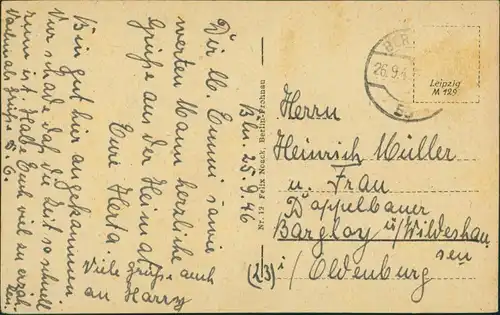 Bln. 25.9.46
Dir lb. Emmi sowie
werten Mann herzliche
Grüße aus der Heimat
Eure Herta
Viele Grüße auch
an Harry
Bin gut hier angekommen.
Nur schade, daß die Zeit so schnell
rum ist. Habe Euch viel zu erzäh-
len.
Nochmals Grüße D. O.
Nr. 12 Felix Noack, Berlin-Frohnau
BER
26.9.4
Leipzig
M 129
Herrn
Heinrich Müller
u. Frau
Doppelbauer
Bargloy ü/Wildeshau
sen
(23) i/Oldenburg